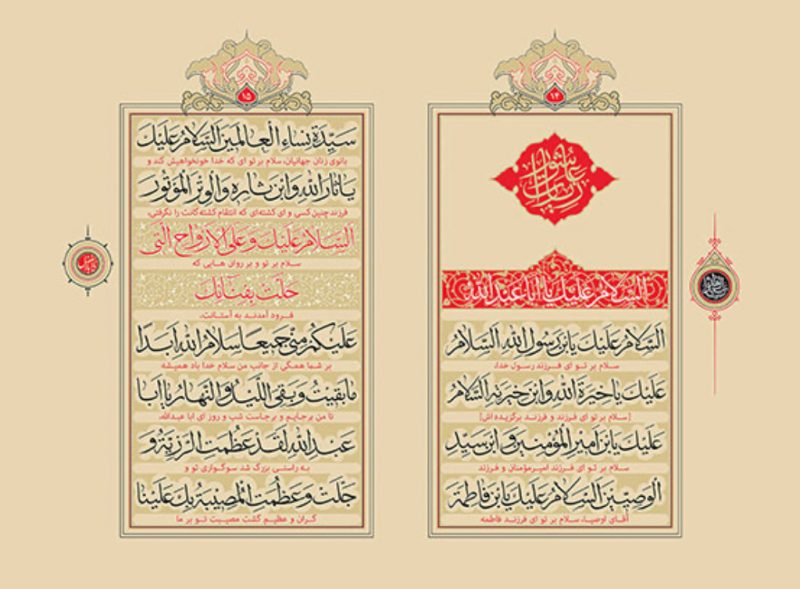 ۱۴
زیارت عاشورا
السَّلامُ عَلَیْكَ یا اَبا عَبْدِ اللهِ
السَّلامُ عَلَیْكَ یَابْنَ رَسُولِ اللهِ السَّلامُ
سلام بر تو ای فرزند رسول خدا،
عَلَیْكَ یا خِیَرَةَ اللهِ وَابْنَ خِیَرَتِهِ السَّلامُ
[سلام بر تو ای فرزند و فرزند برگزیده‌اش]
عَلَیْكَ یَابْنَ اَمیرِ الْمُؤْمِنینَ وَ ابْنَ سَیِّدِ
سلام بر تو ای فرزند امیرمؤمنان و فرزند
الْوَصِیّینَ السَّلامُ عَلَیْكَ یَابْنَ فاطِمَةَ
آقای اوصیا، سلام بر تو ای فرزند فاطمه
۱۵
سَیِّدَةِ نِساءِ الْعالَمینَ السَّلامُ عَلَیْكَ
بانوی زنان جهانیان، سلام بر تو ای که خدا خونخواهیش کند و
یا ثارَ اللهِ وَابْنَ ثارِهِ وَالْوِتْرَ الْمَوْتُورَ
فرزند چنین کسی و ای کشته‌ای که انتقام کشته‌گانت را نگرفتی،
السَّلامُ عَلَیْكَ وَ عَلَی الْاَرْواحِ الَّتی
سلام بر تو و بر روان هایی که
حَلَّتْ بِفِنائِكَ
فرود آمدند به آستانت.
عَلَیْكُمْ مِنّی جَمیعًا سَلامُ اللهِ اَبَدًا
بر شما همگی از جانب من سلام خدا باد همیشه
ما بَقیتُ وَ بَقِیَ اللَّیْلُ وَ النَّهارُ یا اَبا
تا من برجایم و برجاست شب و روز ای ابا عبدالله.
عَبْدِ اللهِ لَقَدْ عَظُمَتِ الرَّزِیَّةُ وَ
به راستی بزرگ شد سوگواری تو و
جَلَّتْ وَ عَظُمَتِ الْمُصیبَةُ بِكَ عَلَیْنا
گران و عظیم گشت مصیبت تو بر ما